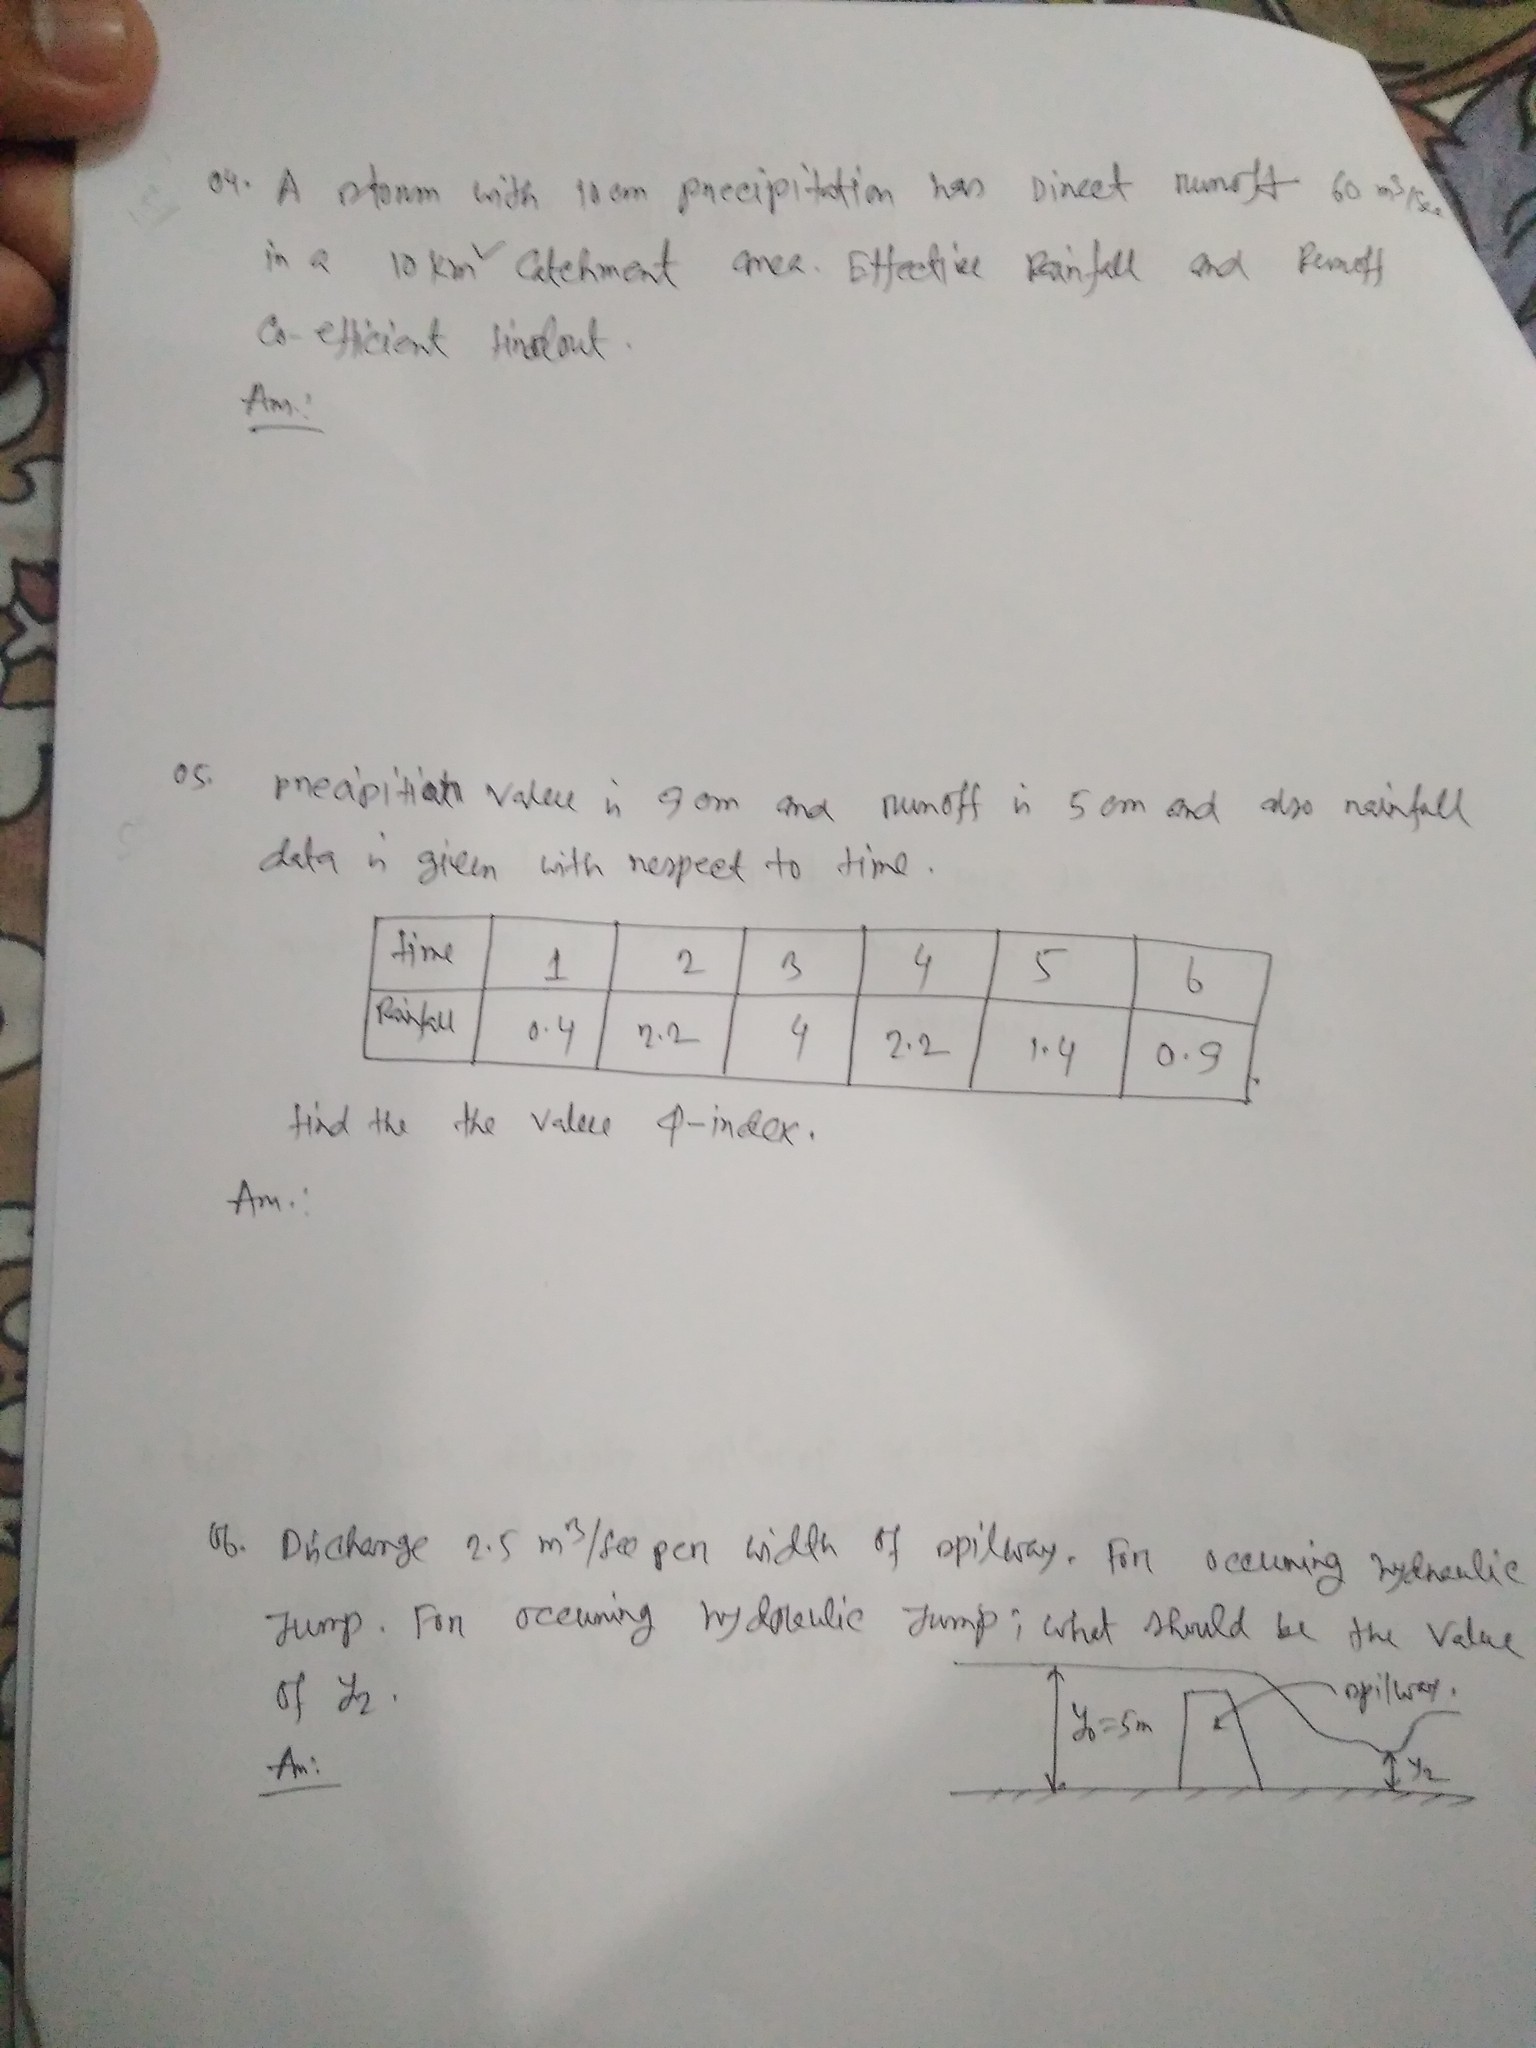 04. A storm with 10 cm precipitation has Direct runoff 60 m³/sec
in a 10 km² Catchment area. Effective Rainfall and Runoff
Co-efficient findout.
Ans:
05. precipitiatn value is 9 cm and runoff is 5 cm and also rainfall
data is given with respect to time.
time 1 2 3 4 5 6
Rainfall 0.4 2.2 4 2.2 1.4 0.9
find the the value φ-index.
Ans.:
06. Discharge 2.5 m³/sec per width of spilway. For occuring hydraulic
Jump. For occuring hydraulic Jump; what should be the value
of y₂.
spilway.
y₀=5m
y₂
Ans: